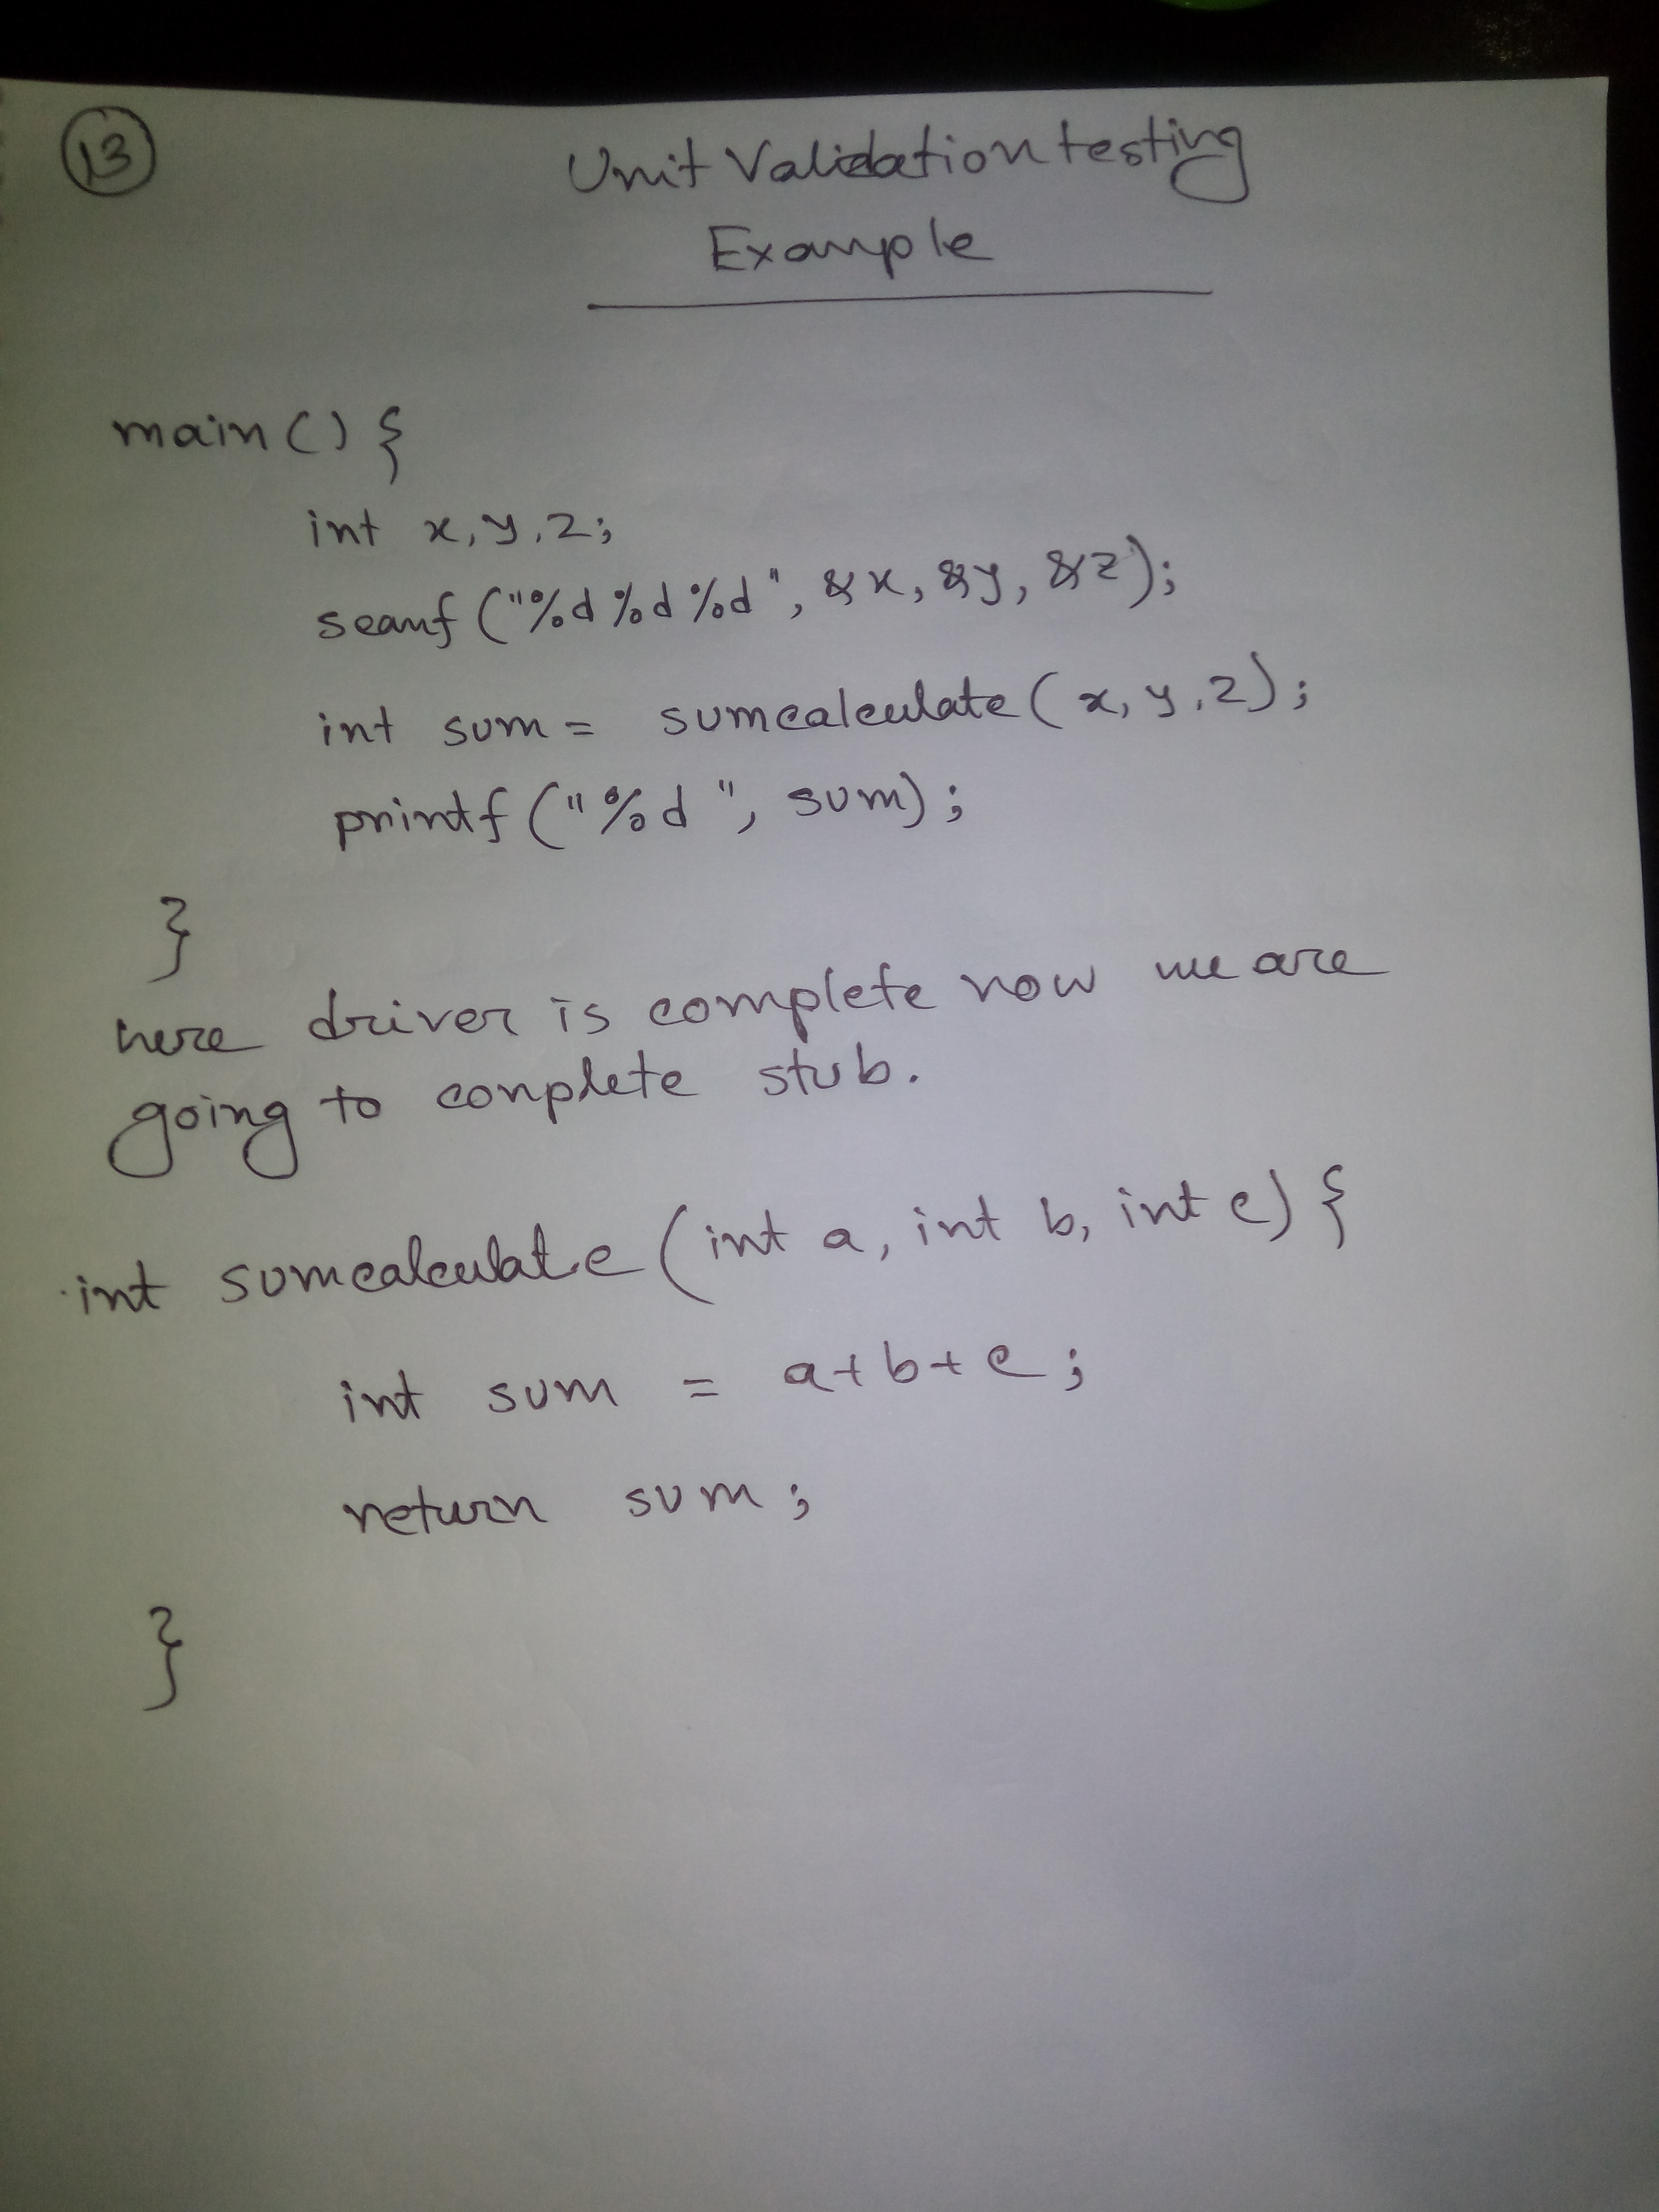 13
Unit Validation testing
Example
main() {
int x, y, z;
scanf ("%d %d %d", &x, &y, &z);
int sum = sumcalculate (x, y, z);
printf ("%d", sum);
}
here driver is complete now we are
going to conplete stub.
int sumcalculate (int a, int b, int c) {
int sum = a+b+c;
return sum;
}